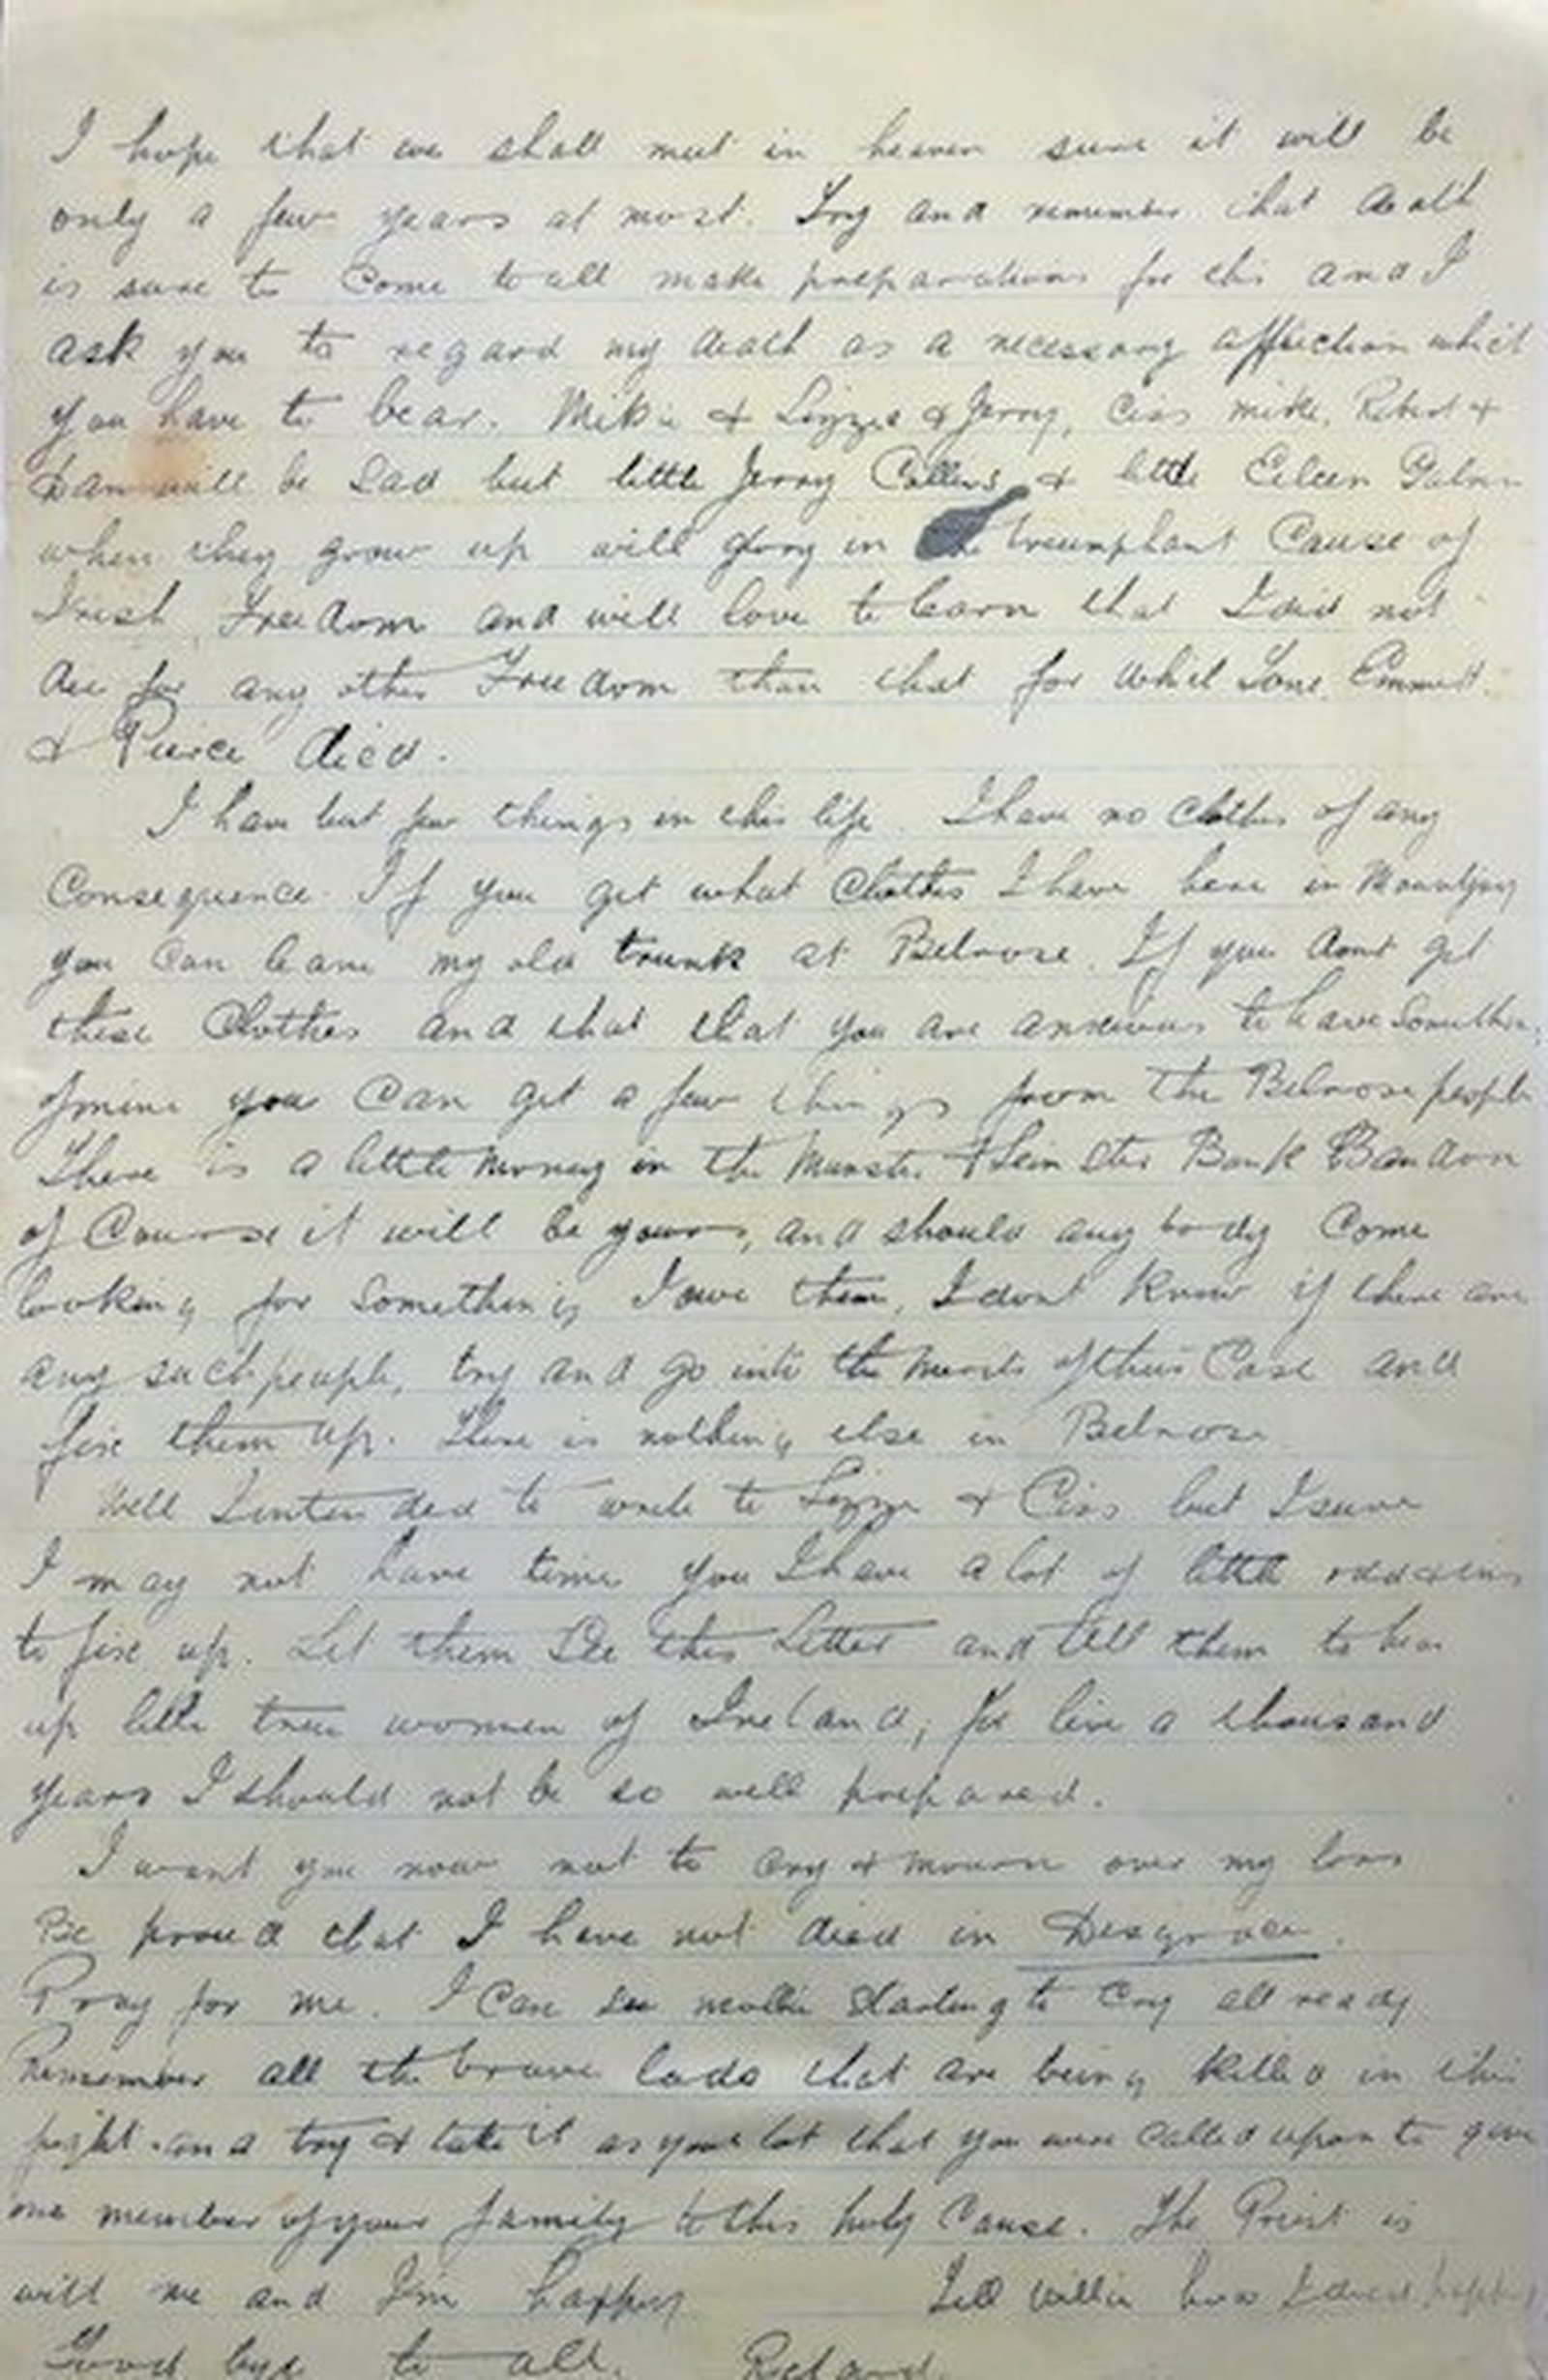 I hope that we shall meet in heaven sure it will be
only a few years at most. Try and remember that death
is sure to come to all make preparations for this and I
ask you to regard my death as a necessary affliction which
you have to bear. Mikie & Lizzie & Jerry, Ciss Mike, Robert &
Dan will be sad but little Jerry Collins & little Eileen
when they grow up will glory in the triumphant Cause of
Irish Freedom and will love to learn that I did not
die for any other Freedom than that for which Tone Emmett
& Pierce died.
I have but few things in this life. I have no clothes of any
Consequence. If you get what Clothes I have here in Mountjoy
you can leave my old trunk at Belrose. If you dont get
these Clothes and that that you are anxious to have Somethin
of mine you Can get a few things from the Belrose people
There is a little money in the Munster & Leinster Bank Bandon
of Course it will be yours, and should any body Come
looking for something I owe them, I dont know if there are
any such people, try and go into the merits of their Case and
fix them up. There is nothing else in Belrose
Well I intended to write to Lizzie & Ciss but I
I may not have time you I have a lot of little
to fix up. Let them See this Letter and tell them to bear
up like true women of Ireland, live a thousand
years I should not be so well prepared.
I want you now not to Cry & mourn over my loss
Be proud that I have not died in Disgrace.
Pray for me. I Can see Mollie starting to Cry all ready
Remember all the brave lads that are being killed in this
fight and try & take it as your lot that you were called upon to give
one member of your family to this holy Cause. The Priest is
with me and I'm happy Tell Willie how I died happy
Good bye to all. Richard.